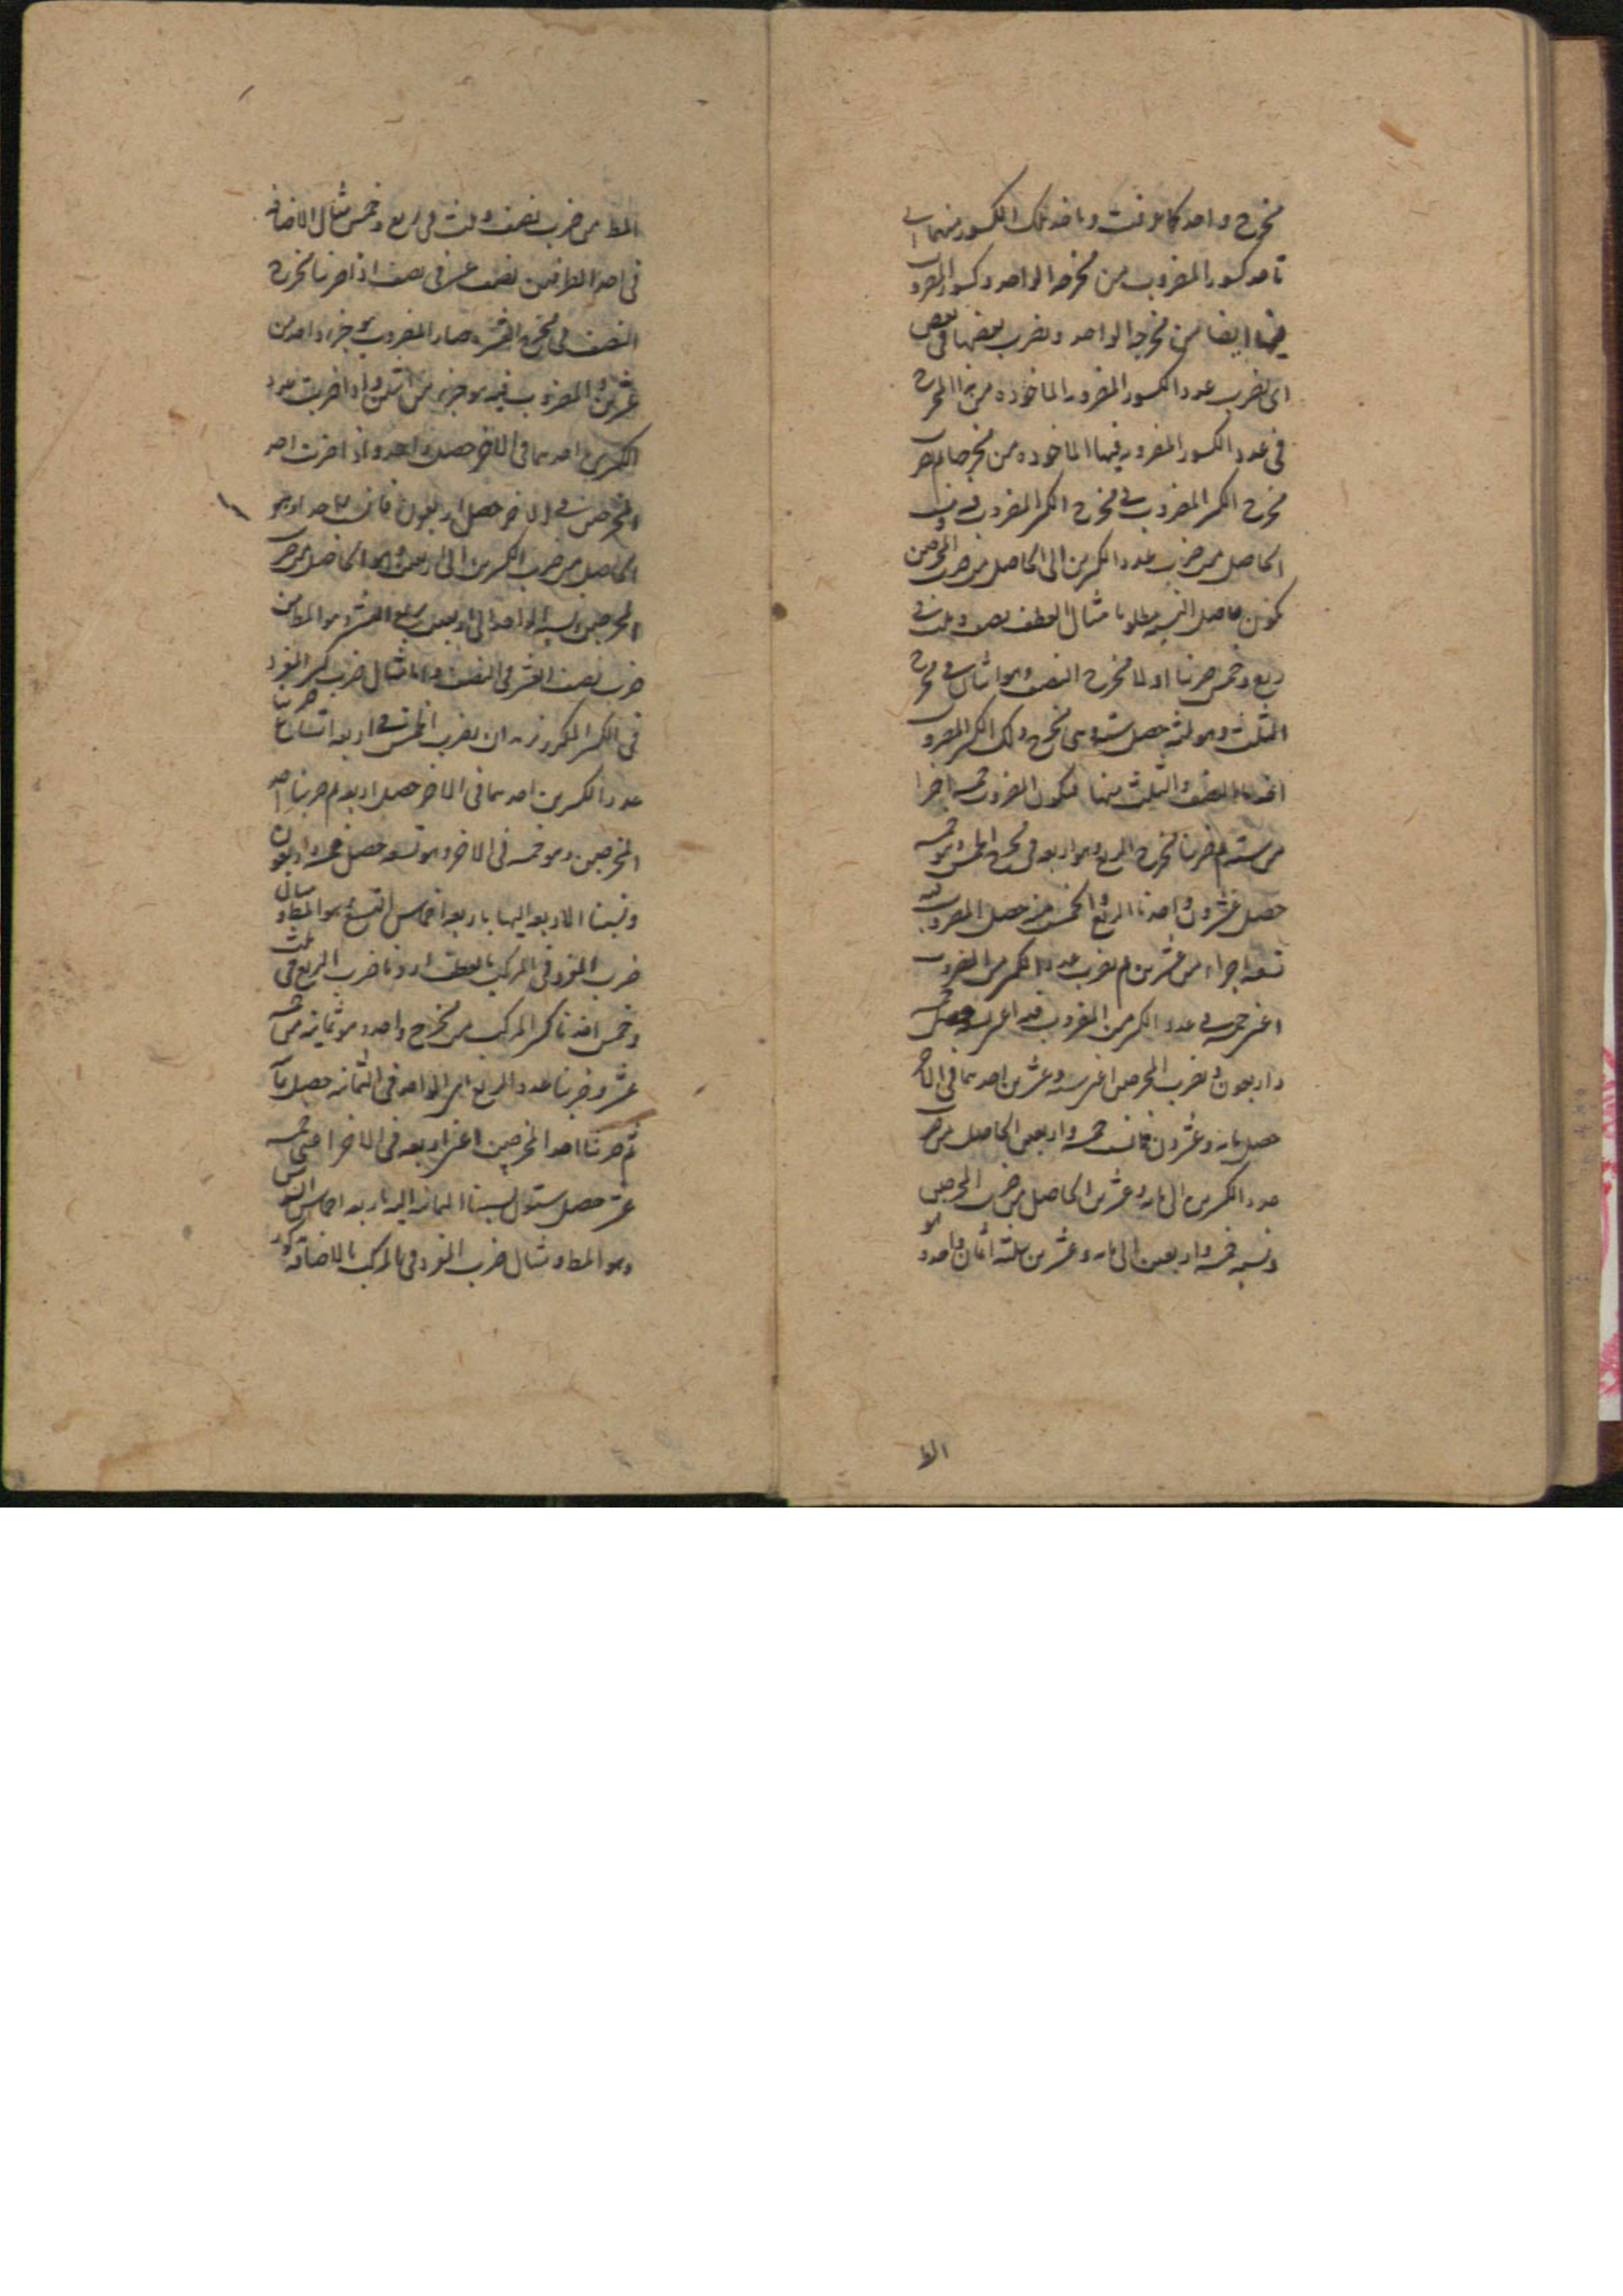 مخرج واحد كما عرفت وناخذ تلك الكسور منهما اى
ناخذ كسور المضروب من مخرجه الواحد وكسور المضروب
فيها ايضا من مخرجه الواحد ونضرب بعضها فى بعض
اى نضرب عدد الكسور المضروبه الماخوذه من المخرج
فى عدد الكسور المضروب فيها الماخوذه من مخرجها ثم نضرب
مخرج الكسر المضروب فى مخرج الكسر المضروب فيه وننسب
الحاصل من ضرب عدد الكسرين الى الحاصل من ضرب المخرجين
يكون حاصل النسبه مطلوبا مثال العطف نصف وثلث فى
ربع وخمس ضربنا اولا مخرج النصف وهو اثنان فى مخرج
الثلث وهو ثلثه حصل سته وهى مخرج ذلك الكسر المضروب
اخذنا النصف والثلث منها فيكون المضروب خمسه اجزا
من سته ثم ضربنا مخرج الربع وهو اربعه فى مخرج الخمس وهو خمسه
حصل عشرون واخذنا الربع والخمس منه حصل المضروب فيه
تسعه اجزاء من عشرين ثم نضرب عدد الكسر من المضروب
اعنى خمسه فى عدد الكسر من المضروب فيه اعنى تسعه حصل خمسه
واربعون ونضرب المخرجين اعنى سته وعشرين احدهما فى الاخر
حصل مايه وعشرون فانسب خمسه واربعين الحاصل من ضرب
عدد الكسرين الى مايه وعشرين الحاصل من ضرب المخرجين
ونسبه خمسه واربعين الى مايه وعشرين ثلثه اثمان واحد وهو
المط
المط من ضرب نصف وثلث فى ربع وخمس مثال الاضافه
فى احد الطرفين نصف عشر فى نصف اذا ضربنا مخرج
النصف فى مخرج العشر صار المضروب هو جزء واحد من
عشرين والمضروب فيه هو جزء من اثنين واذا ضربت عدد
الكسرين احدهما فى الاخر حصل واحد واذا ضربت احد
المخرجين فى الاخر حصل اربعون فانسب الواحد وهو
الحاصل من ضرب الكسرين الى اربعين وهو الحاصل من ضرب
المخرجين ونسبه الواحد الى اربعين ربع العشر وهو المط من
ضرب نصف العشر فى النصف واما مثال ضرب كسر المفرد
فى الكسر المكرر نريد ان نضرب الخمس فى اربعه اتساع ضربنا
عدد الكسرين احدهما فى الاخر حصل اربعه ثم ضربنا احد
المخرجين وهو خمسه فى الاخر وهو تسعه حصل خمسه واربعون
ونسبنا الاربعه اليها باربعه اخماس التسع وهو المط ومثال
ضرب المفرد فى المركب بالعطف اردنا ضرب الربع فى ثلث
وخمس اخذنا كسر المركب من مخرج واحد وهو ثمانيه من خمسه
عشر وضربنا عدد الربع اى الواحد فى الثمانيه حصل ثمانيه
ثم ضربنا احد المخرجين اعنى اربعه فى الاخر اعنى خمسه
عشر حصل ستون نسبنا الثمانيه اليه
وهو المط ومثال ضرب المفرد فى المركب بالاضافه